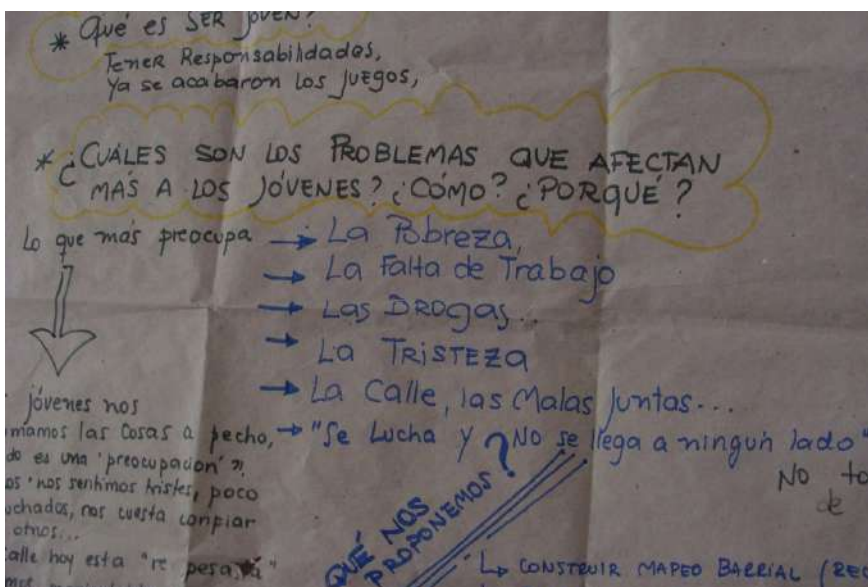 * Qué es SER JOVEN?
Tener Responsabilidades,
Ya se acabaron los JUEGOS,
* ¿CUÁLES SON LOS PROBLEMAS QUE AFECTAN
MÁS A LOS JÓVENES? ¿CÓMO? ¿PORQUÉ?
Lo que más preocupa → La Pobreza,
→ La Falta de Trabajo
→ Las DROgas...
→ La TRISTEZA
→ La Calle, las Malas Juntas...
→ "Se Lucha y No se llega a ningún lado"
jóvenes nos
mamos las Cosas a pecho,
do es una 'preocupación'".
os 'nos sentimos tristes, poco
uchados, nos cuesta confiar
otros...
calle hoy esta "re pesada"
No to
de
QUÉ NOS
PROPONEMOS?
↳ CONSTRUIR MAPEO BARRIAL (RE